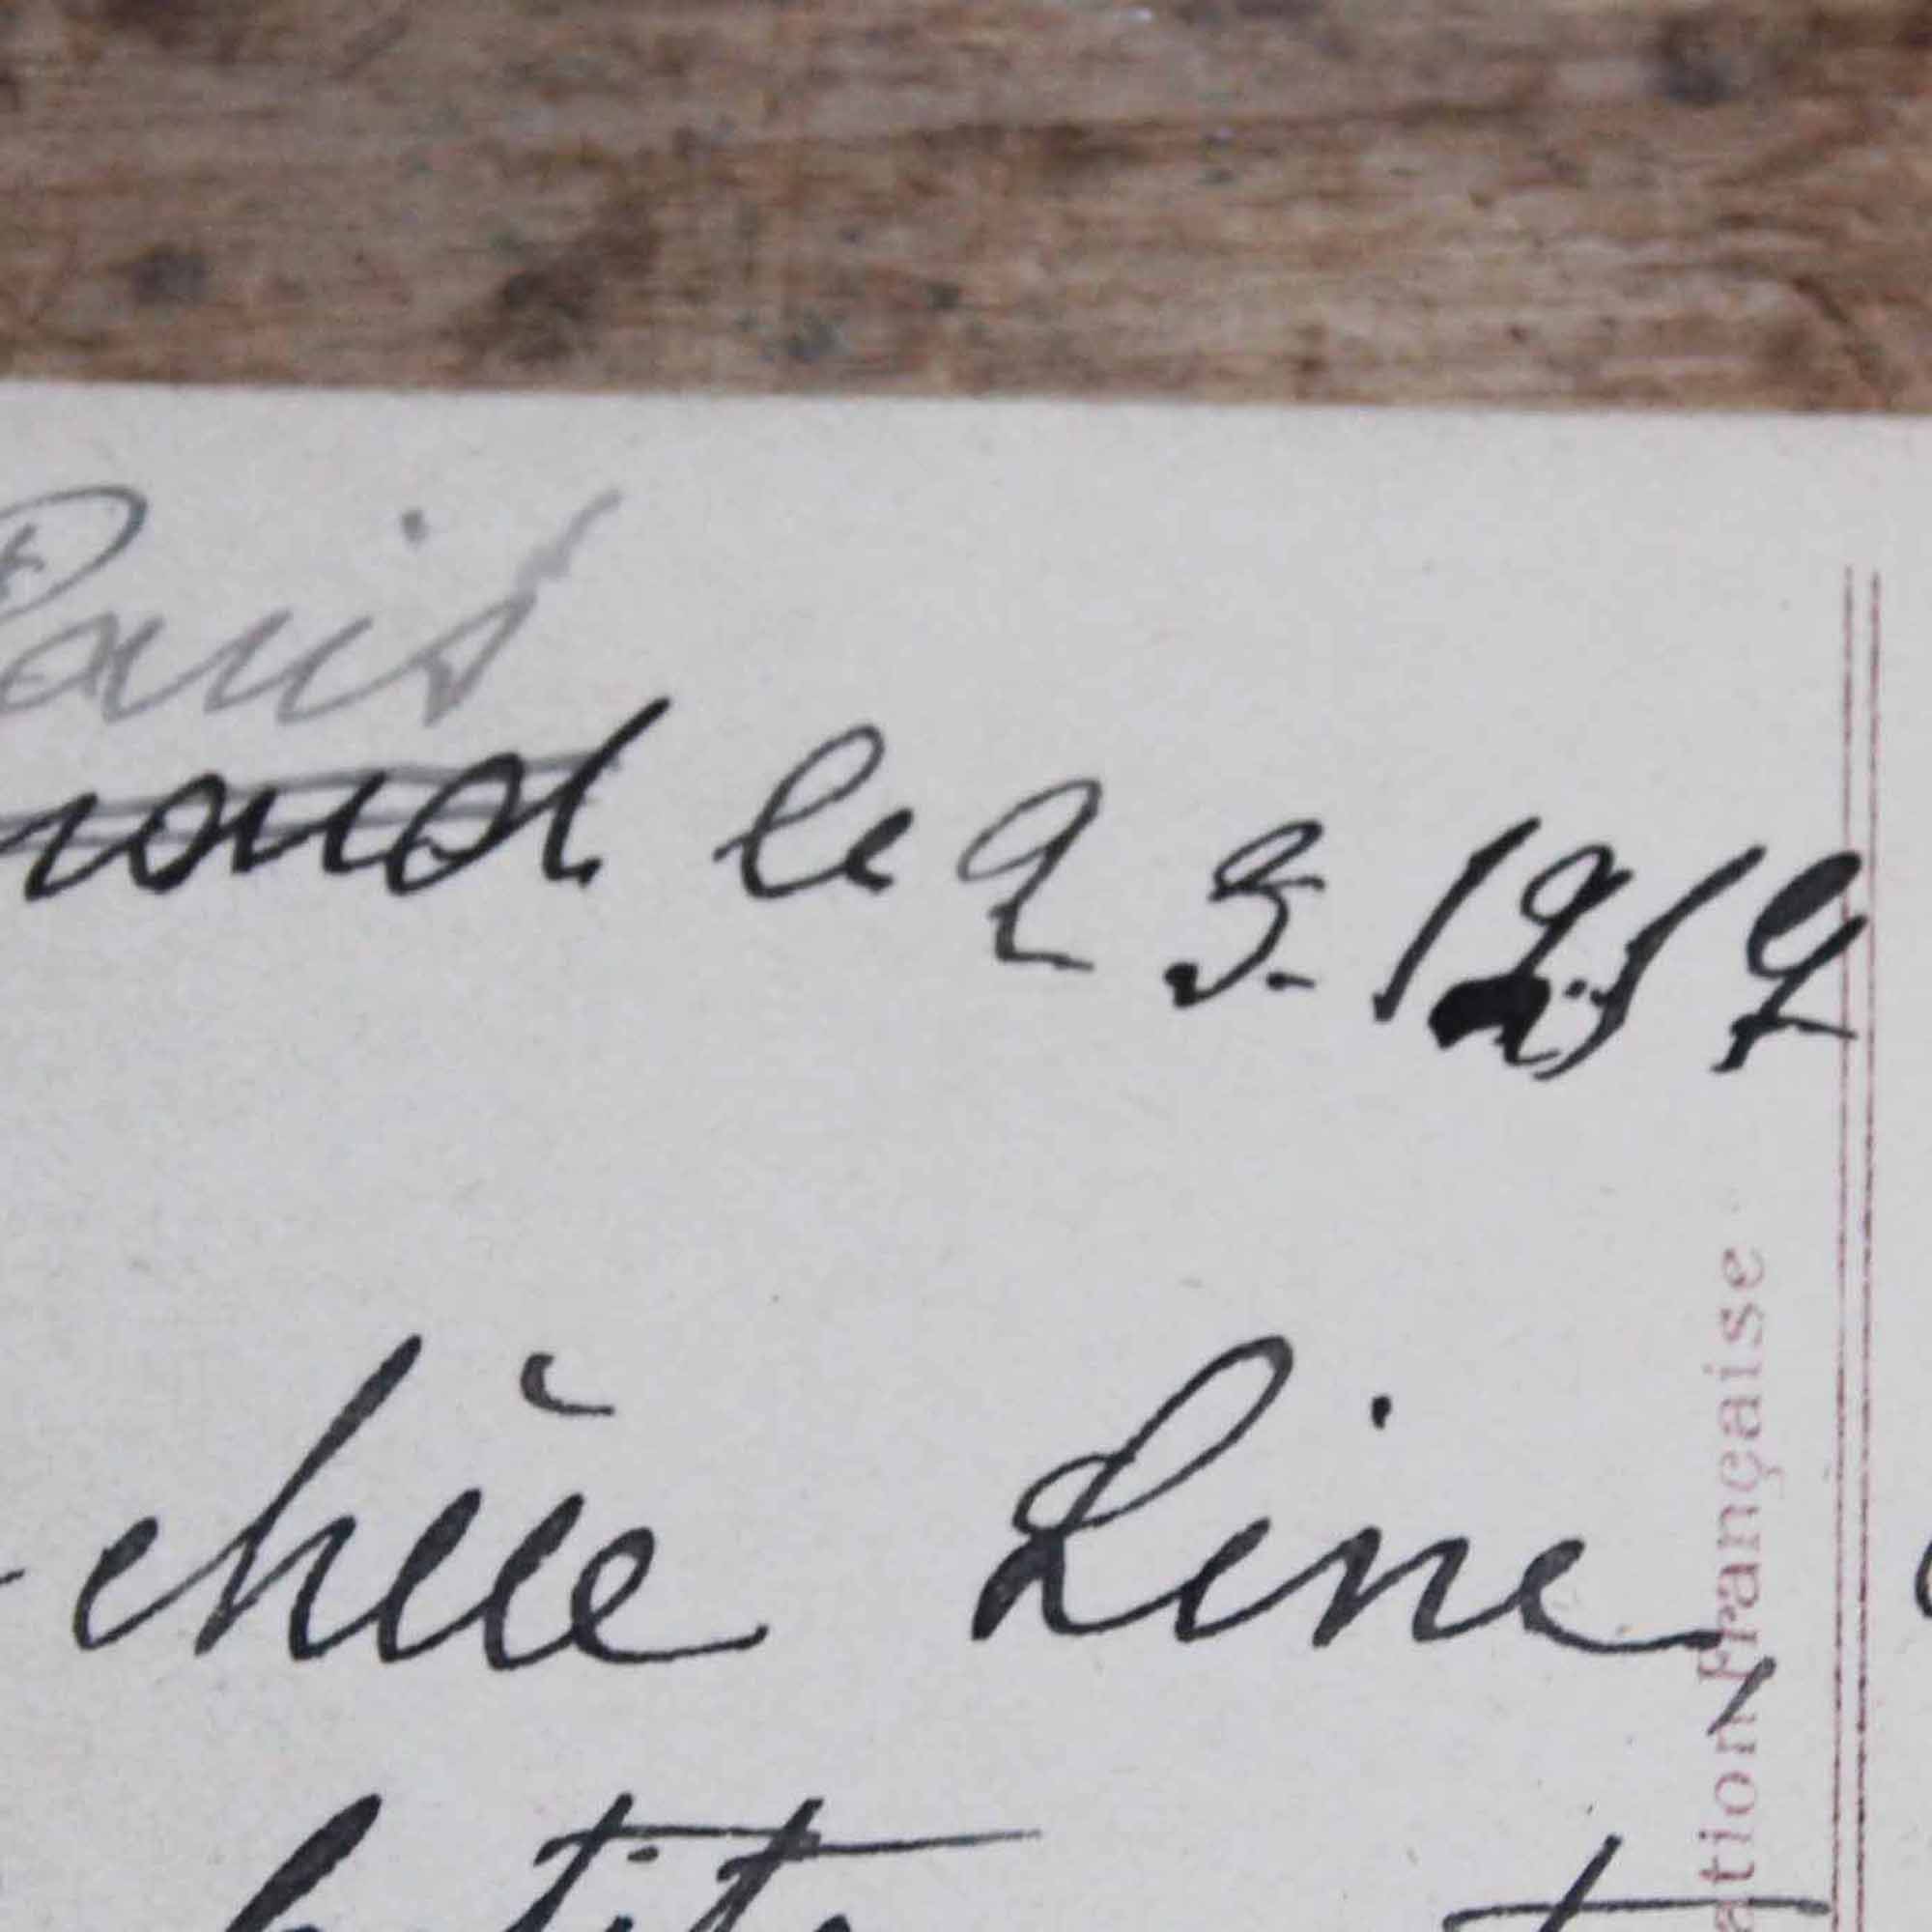 Paris
le 9 5. 1919
chère Line,
petite
ation Française